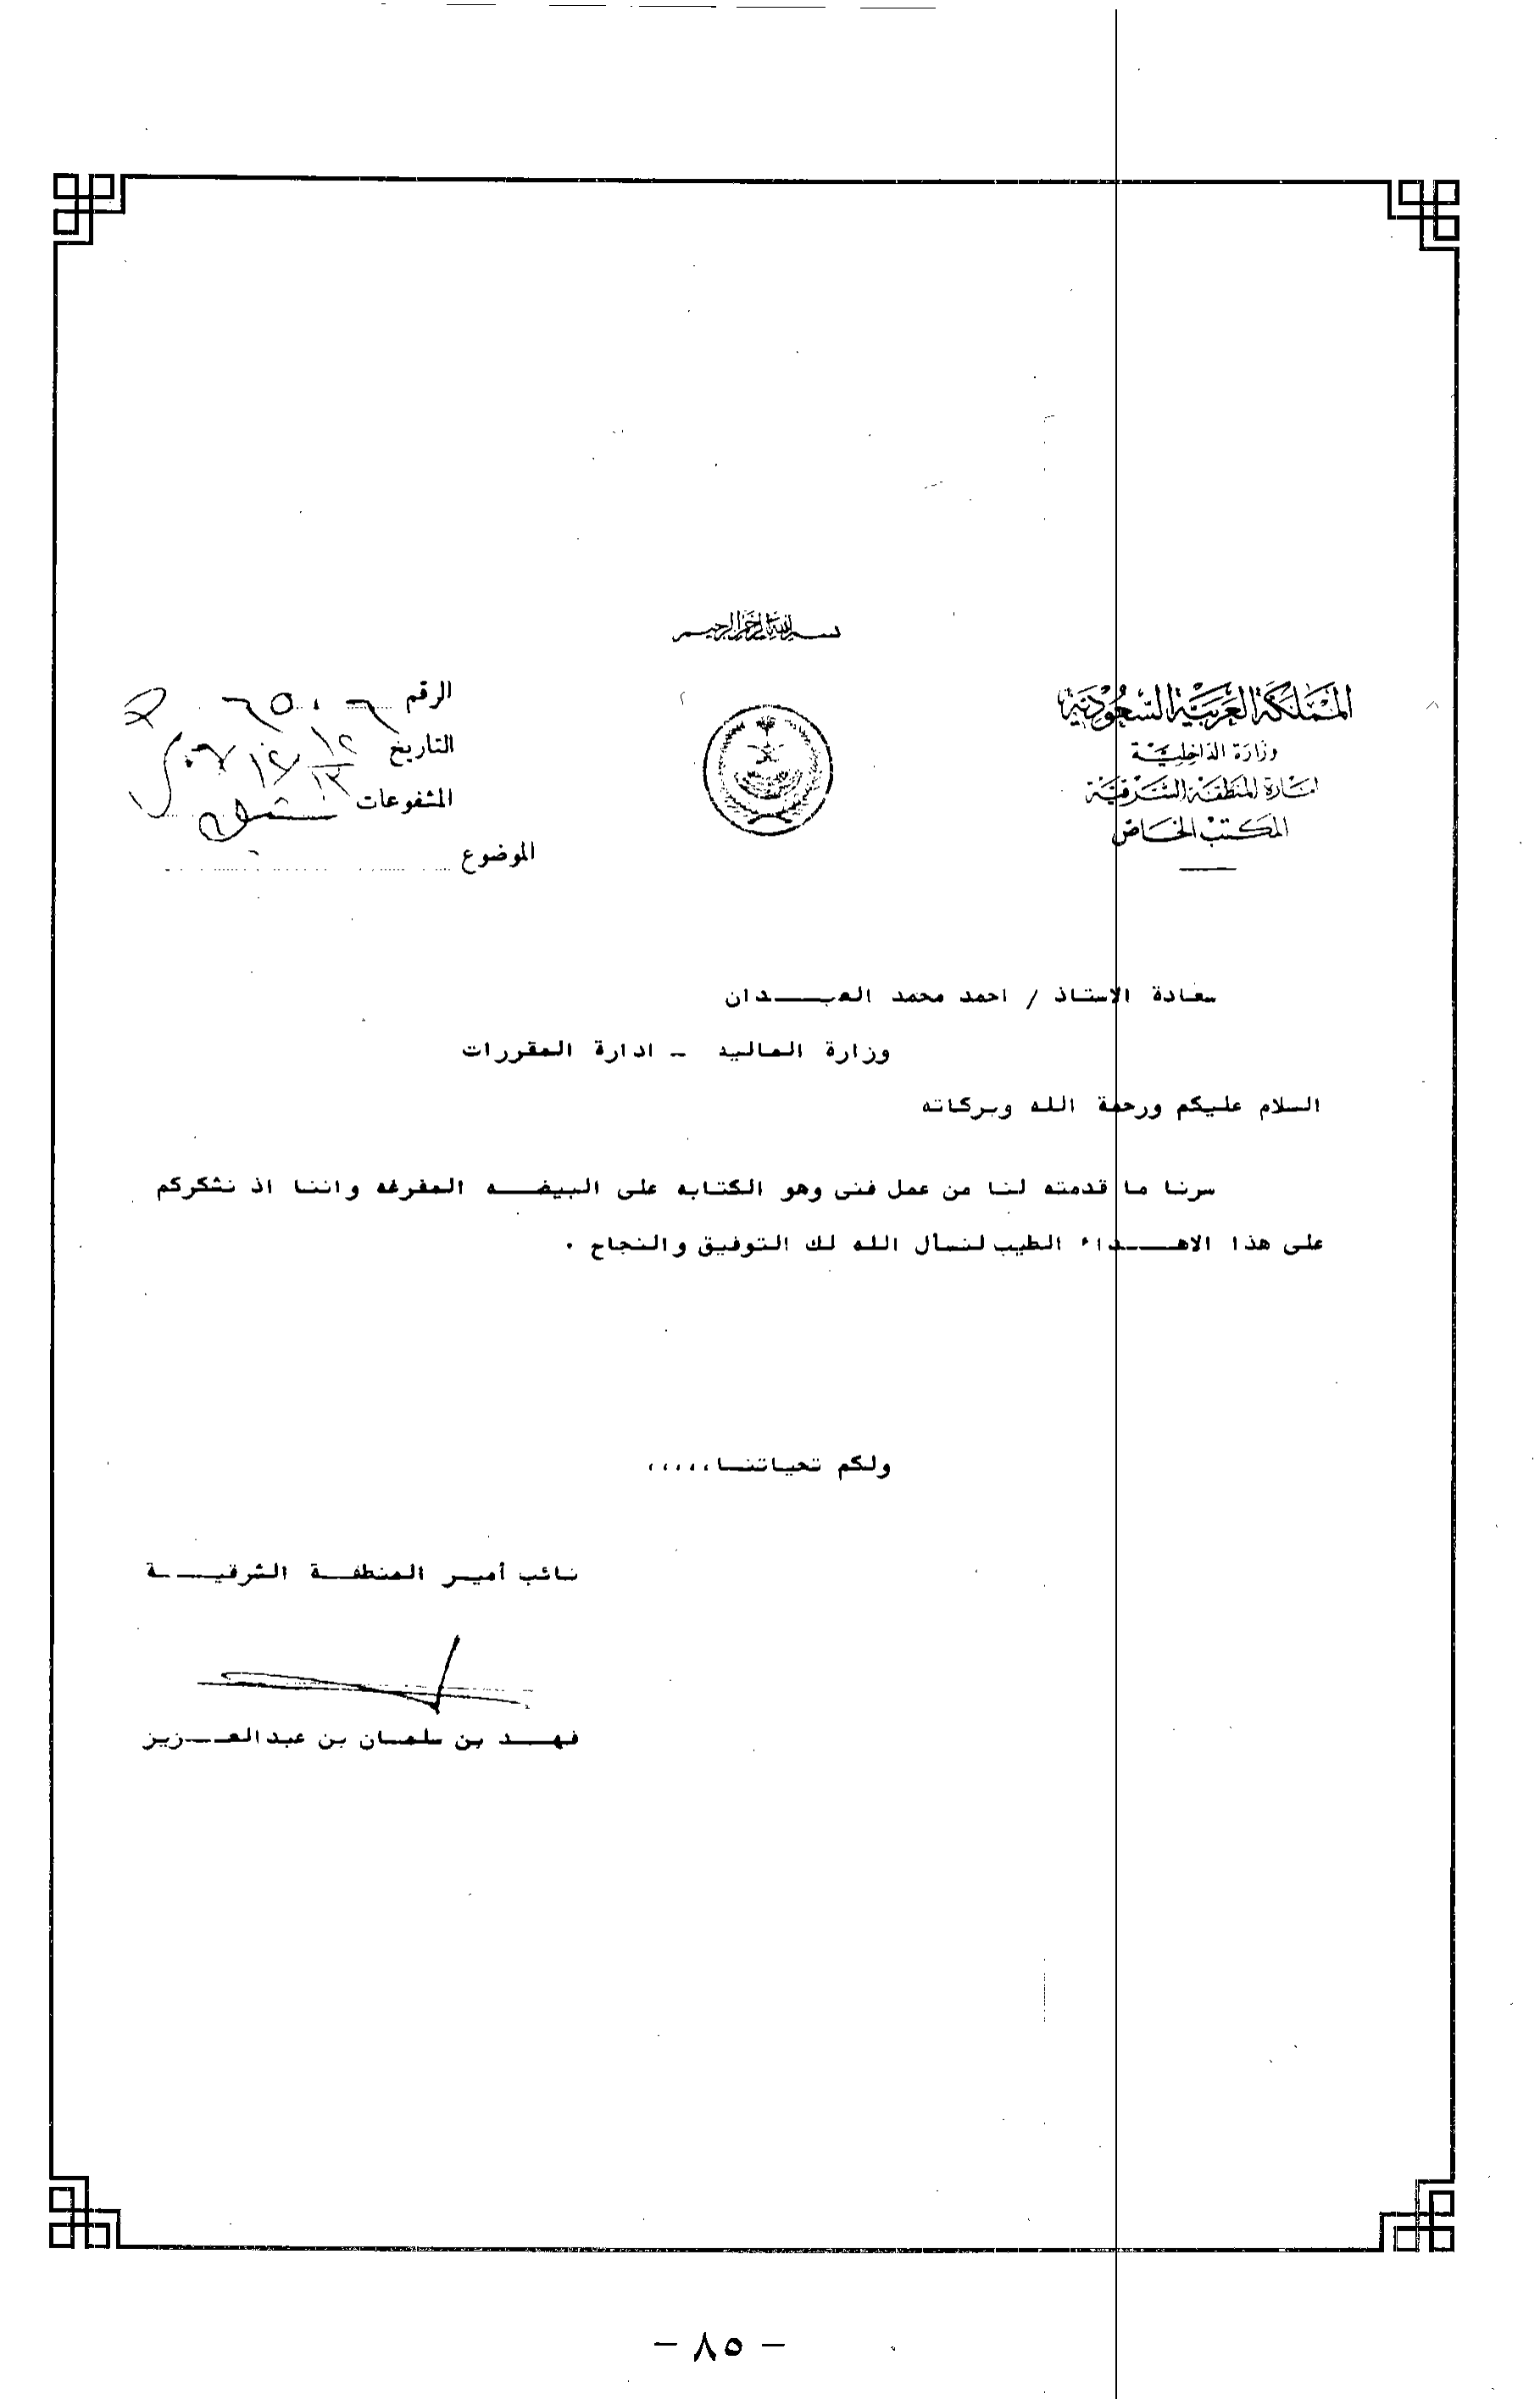 بسم الله الرحمن الرحيم
المملكة العربية السعودية
وزارة الداخلية
امارة المنطقة الشرقية
المكتب الخاص
الرقم
التاريخ
المشفوعات
الموضوع
سعادة الاستاذ / احمد محمد العبـــدان
وزارة الماليه - ادارة المقررات
السلام عليكم ورحمة الله وبركاته
سرنا ما قدمته لنا من عمل فنى وهو الكتابه على البيضـــه المفرغه واننا اذ نشكركم
على هذا الاهـــداء الطيب لنسأل الله لك التوفيق والنجاح .
ولكم تحياتنــا،،،،،
نائب أميــر المنطقــة الشرقيـــة
فهـــد بن سلمــان بن عبدالعـــزيز
- ٨٥ -